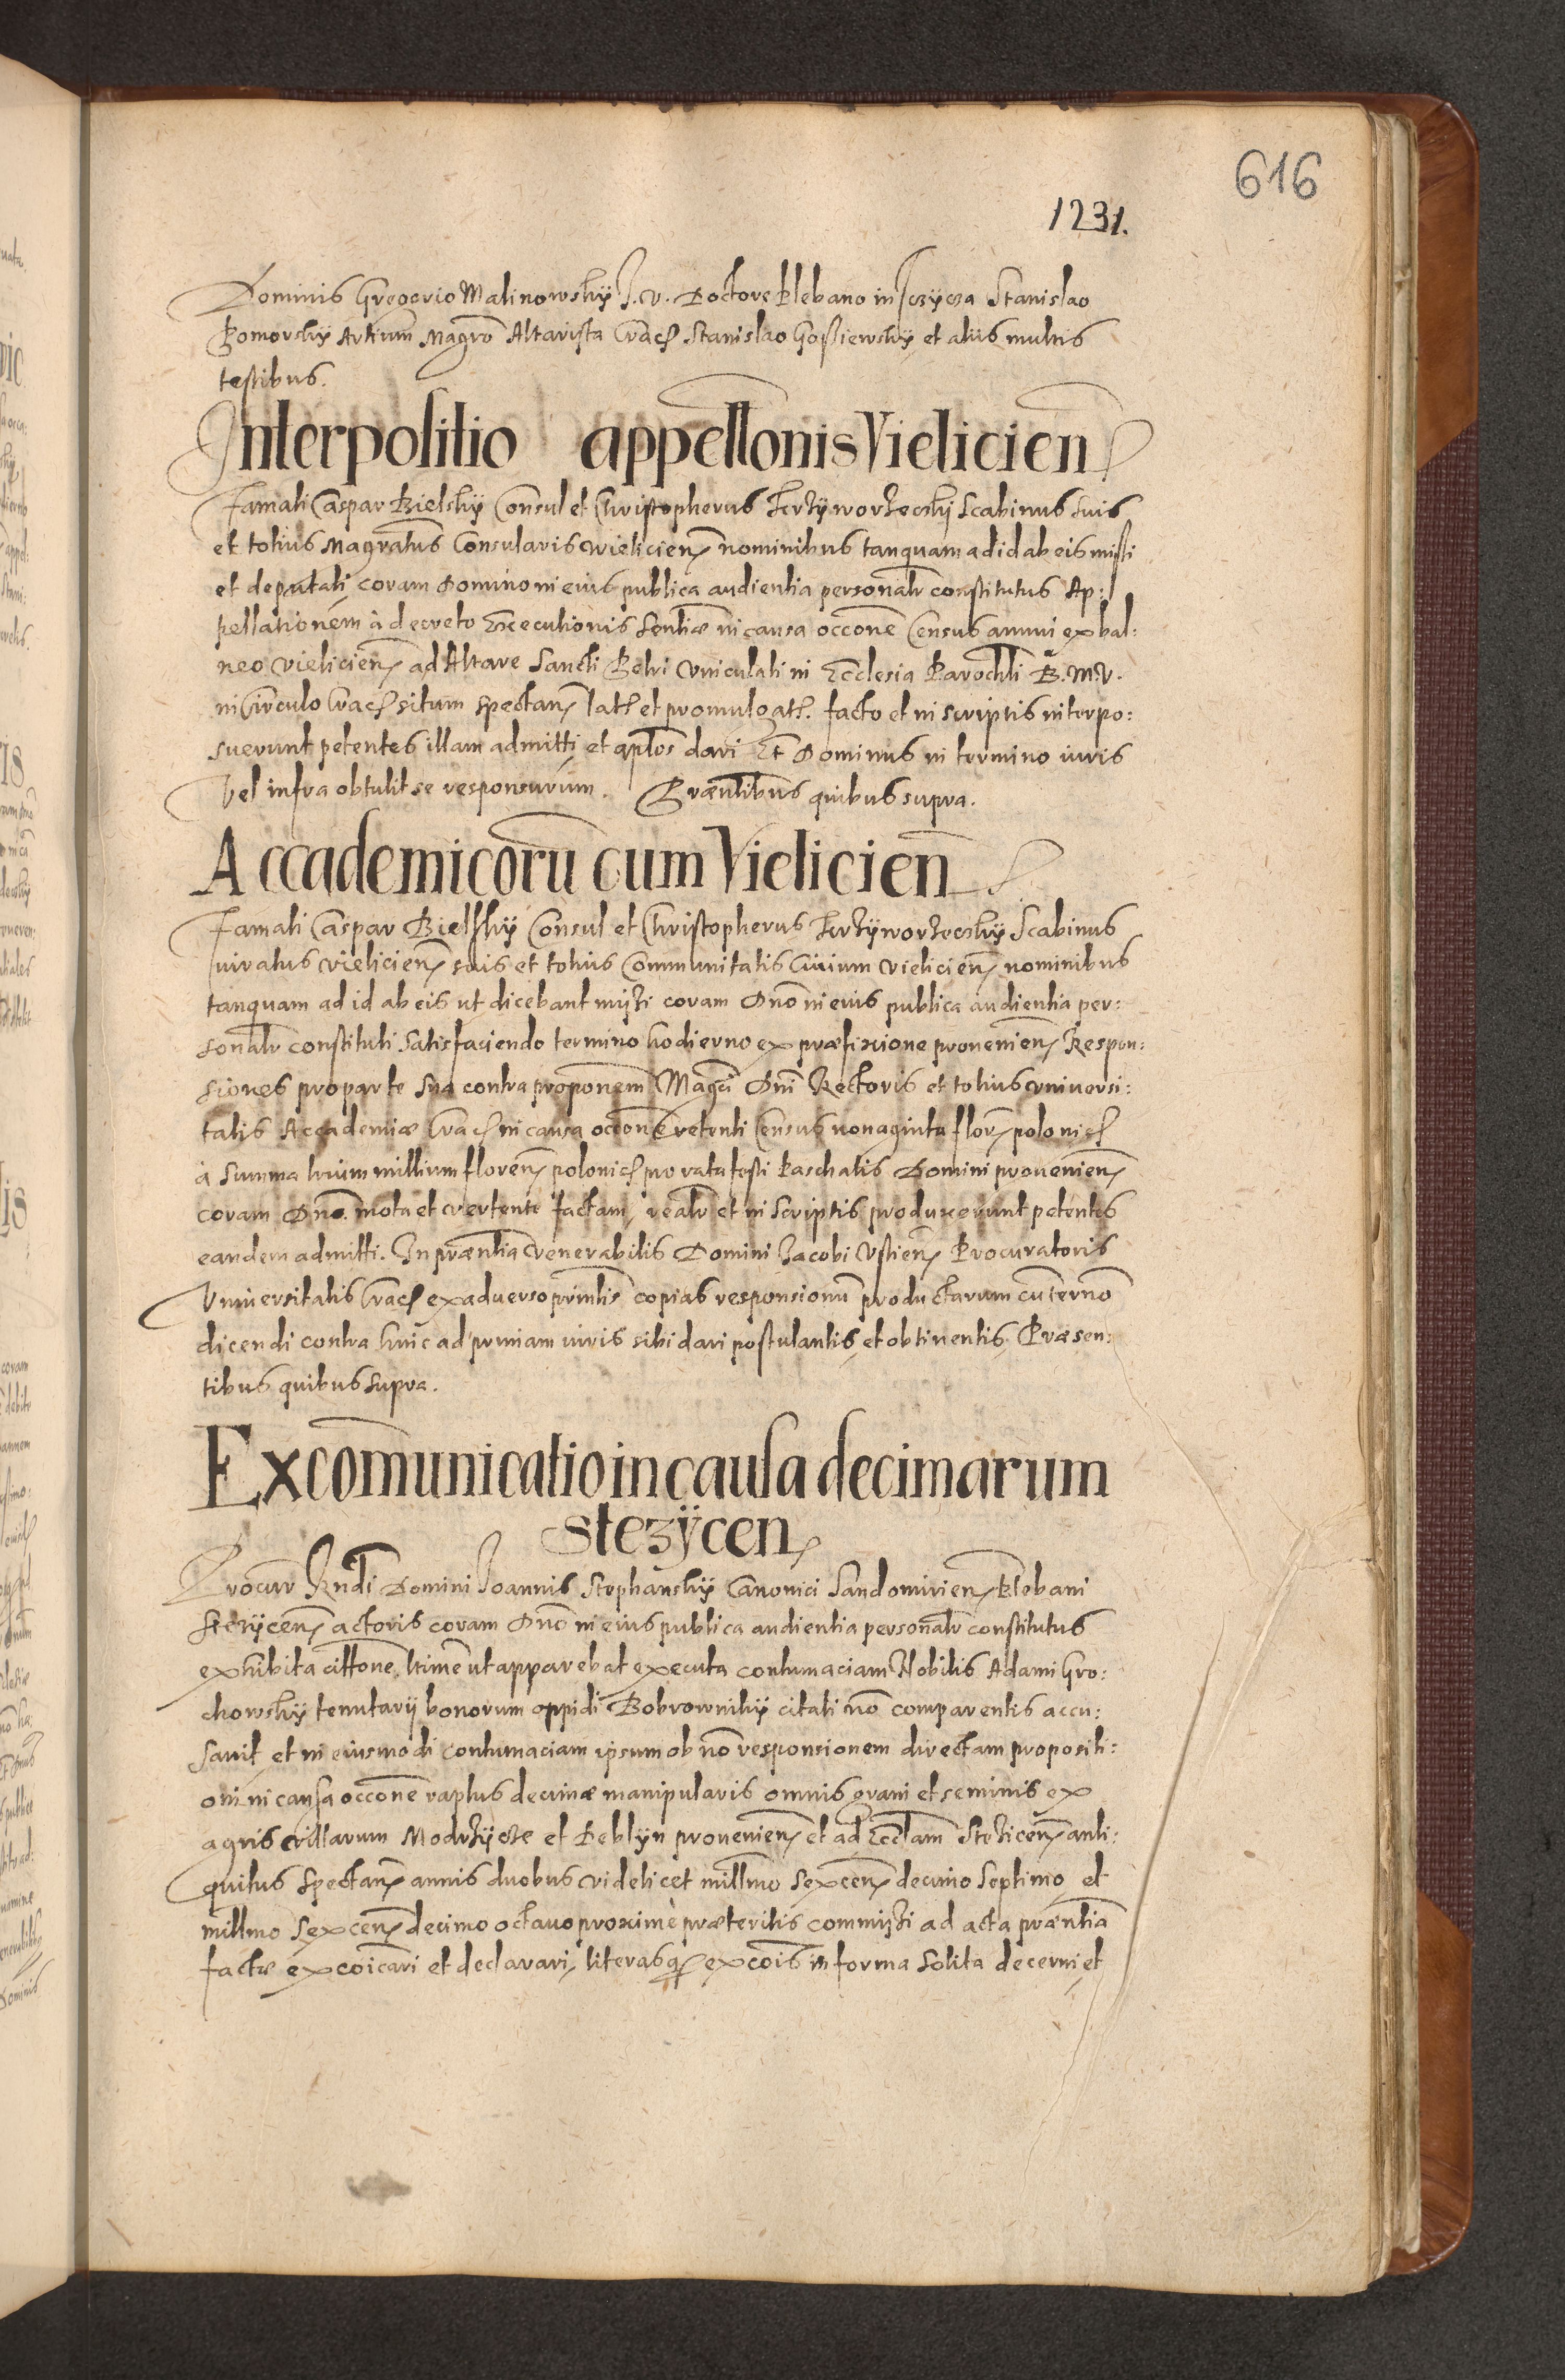 616
1231.
Dominis Gregorio Malinowskÿ J. V. Doctore Plebano in Stanislao
Komorskÿ Artium Magrõ Altarista Crac. Stanislao Gosſiewskÿ et aliis multis
testibus.
Interpositio appelltõnis Vielicien
Famati Caspar Bielskÿ Consul et Christopherus Scabinus suis
et totius Magrãtus Consularis Vieliciẽn nominibus tanquam ad id ab eis misſi
et deputati coram Domino in eius publica audientia personalr constitutus Ap:
pellationem à decreto Executionis sentiæ in causa occone Census annui ex bal:
neo Vieliciẽn ad Altare Sancti Petri Vniculati in Ecclesia Parochli B. M. V.
in Circulo Crac. situm spectañ lat. et promulgat. facto et in scriptis interpo:
suerunt petentes illam admitti et aplos dari Et Dominus in termino iuris
Vel infra obtulit se responsurum. Præntibus quibus supra.
Accademicorũ cum Vielicien
Famati Caspar Bielſkÿ Consul et Christopherus Scabinus
iuratus Vieliciẽn suis et totius Communitatis Ciuium Vieliciẽn nominibus
tanquam ad id ab eis ut dicebant misſi coram Dnõ in eius publica audientia per:
sonalr constituti satisfaciendo termino hodierno ex præfixione proueniẽn Respon:
siones pro parte sua contra proponem Magci Dni Rectoris et totius vniuersi:
tatis Accademiæ Crac. in causa occone retenti Census nonaginta floreñ polonic.
à summa trium millium floreñ polonic. pro rata festi Paschatis Domini proueniẽn
coram Dnõ. mota et vertente factam, realr et in scriptis produxerunt petentes
eandem admitti. In præntia Venerabilis Domini Jacobi Vstieñ Procuratoris
Vniuersitatis Crac. ex aduerso printis copias responsionũ productarum cũ termõ
dicendi contra hinc ad primam iuris sibi dari postulantis, et obtinentis. Præsen:
tibus quibus supra.
Excõmunicatio in causa decimarum
Stezÿcen
Procur Rndi Domini Joannis Stephanskÿ Canonici Sandomirieñ Plebani
Stezÿceñ actoris coram Dnõ in eius publica audientia personalr constitutus
exhibita cittone ltime ut apparebat executa contumaciam Nobilis Adami Gro:
chowskÿ tenutarÿ bonorum oppidi Bobrownikÿ citati nõ comparentis accu:
sauit et in eiusmodi contumaciam ipsum ob nõ responsionem directam propositi:
oni in causa occone raptus decimæ manipularis omnis grani et seminis ex
agris villarum Modrzÿcze et Deblÿn proueniẽn et ad Ecclam Steziceñ anti:
quitus spectañ annis duobus videlicet millmo sexceñ decimo septimo et
millmo sexceñ decimo octauo proxime præteritis commisſi ad acta præntia
factæ excoicari et declarari, literasq excois in forma solita decerni et